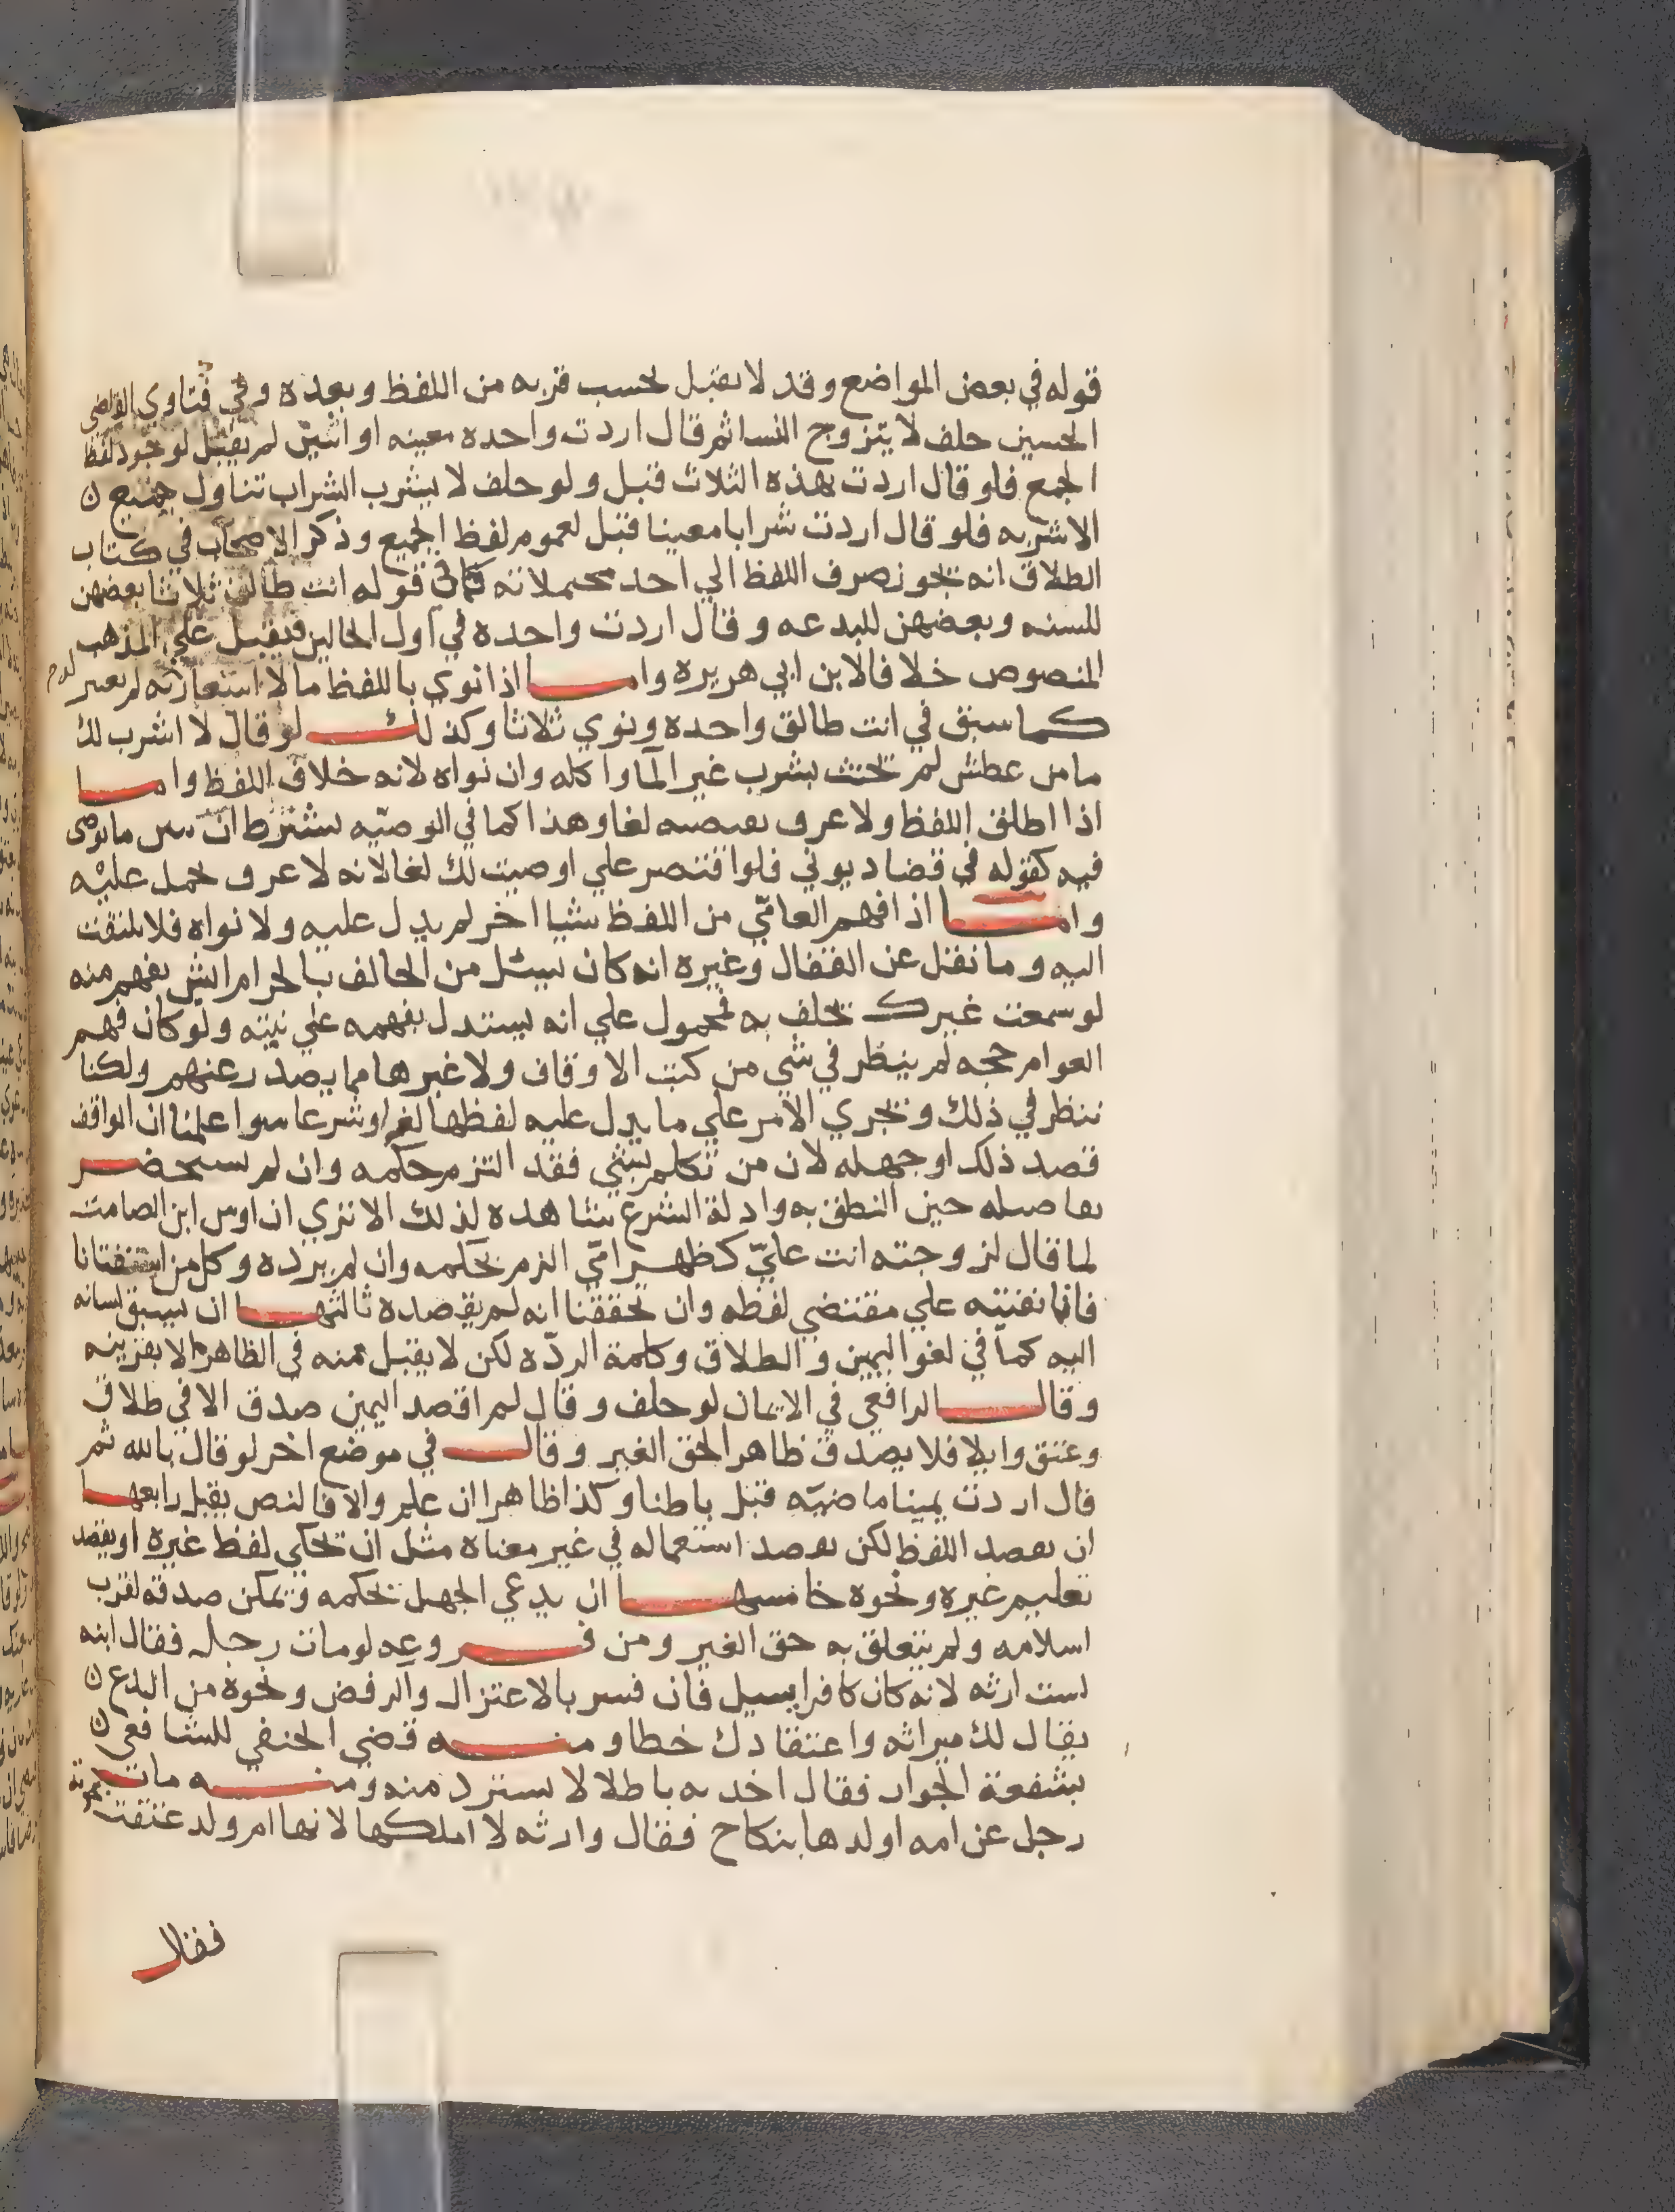 قوله في بعض المواضع وقد لا يقبل بحسب قربه من اللفظ وبعده وفي فتاوي القاضي
الحسين حلف لا يتزوج النسا ثم قال اردت واحده معينه او اثنين لم يقبل لوجود لفظ
الجمع فلو قال اردت بهذه الثلاث قبل ولو حلف لا يشرب الشراب تناول جميع
الاشربه فلو قال اردت شرابا معينا قبل لعموم لفظ الجميع وذكر الاصحاب في كتاب
الطلاق انه يجوز صرف اللفظ الي احد محتملاته كما في قوله انت طالق ثلاثا بعضهن
للسنه وبعضهن للبدعه وقال اردت واحده في اول الحالين فيقبل علي المذهب
المنصوص خلافا لابن ابي هريره واما اذا نوي باللفظ ما لا استعار له لم يعتبر
كما سبق في انت طالق واحده ونوي ثلاثا وكذلك لو قال لا اشرب لك
ما من عطش لم يحنث بشرب غير الما واكله وان نواه لانه خلاف اللفظ واما
اذا اطلق اللفظ ولا عرف لغا وهذا كما في الوصيه يشترط ان يبين ما يوصي
فيه كقوله في قضا ديوني فلو اقتصر علي اوصيت لك لغا لانه لا عرف يحمل عليه
واما اذا فهم العامي من اللفظ شيا اخر لم يدل عليه ولا نواه فلا يلتفت
اليه وما نقل عن القفال وغيره انه كان يسئل من الحالف بالحرام ايش يفهم منه
لو سمعت غيرك يحلف به فمحمول علي انه يستدل بفهمه علي نيته ولو كان فهم
العوام حجه لم ينظر في شي من كتب الاوقاف ولا غيرها مما يصدر عنهم ولكنا
ننظر في ذلك ونجري الامر علي ما يدل عليه لفظها لغة او شرعا سوا علمنا ان الواقف
قصد ذلك او جهله لان من تكلم بشي فقد التزم حكمه وان لم يستحضر
تفاصيله حين النطق به وادلة الشرع شاهده لذلك الا تري ان اوس ابن الصامت
لما قال لزوجته انت عليّ كظهر امّي الزم بحكمه وان لم يرده وكل من استفتانا
فانا نفتيه علي مقتضي لفظه وان تحققنا انه لم يقصده ثالثها ان يسبق لسانه
اليه كما في لغو اليمين والطلاق وكلمة الردّه لكن لا يقبل منه في الظاهر الا بقرينه
وقال الرافعي في الايمان لو حلف وقال لم اقصد اليمين صدق الا في طلاق
وعتق وايلا فلا يصدق ظاهرا لحق الغير وقال في موضع اخر لو قال بالله ثم
قال اردت يمينا ماضيه قبل باطنا وكذا ظاهرا ان علم والا فالنص يقبل رابعها
ان يقصد اللفظ لكن يقصد استعماله في غير معناه مثل ان يحكي لفظ غيره او يقصد
تعليم غيره ونحوه خامسها ان يدعي الجهل بحكمه ويمكن صدقه لقرب
اسلامه ولم يتعلق به حق الغير ومن فروعه لو مات رجل فقال ابنه
لست ارثه لانه كان كافرا يسيل فان فسر بالاعتزال والرفض ونحوه من البدع
يقال لك ميراثه واعتقادك خطا ومنه قضي الحنفي للشافعي
بشفعة الجوار فقال اخذ به باطلا لا يسترد منه ومنه مات
رجل عن امه اولدها بنكاح فقال وارثه لا املكها لانها ام ولد عتقت بموته
فقال